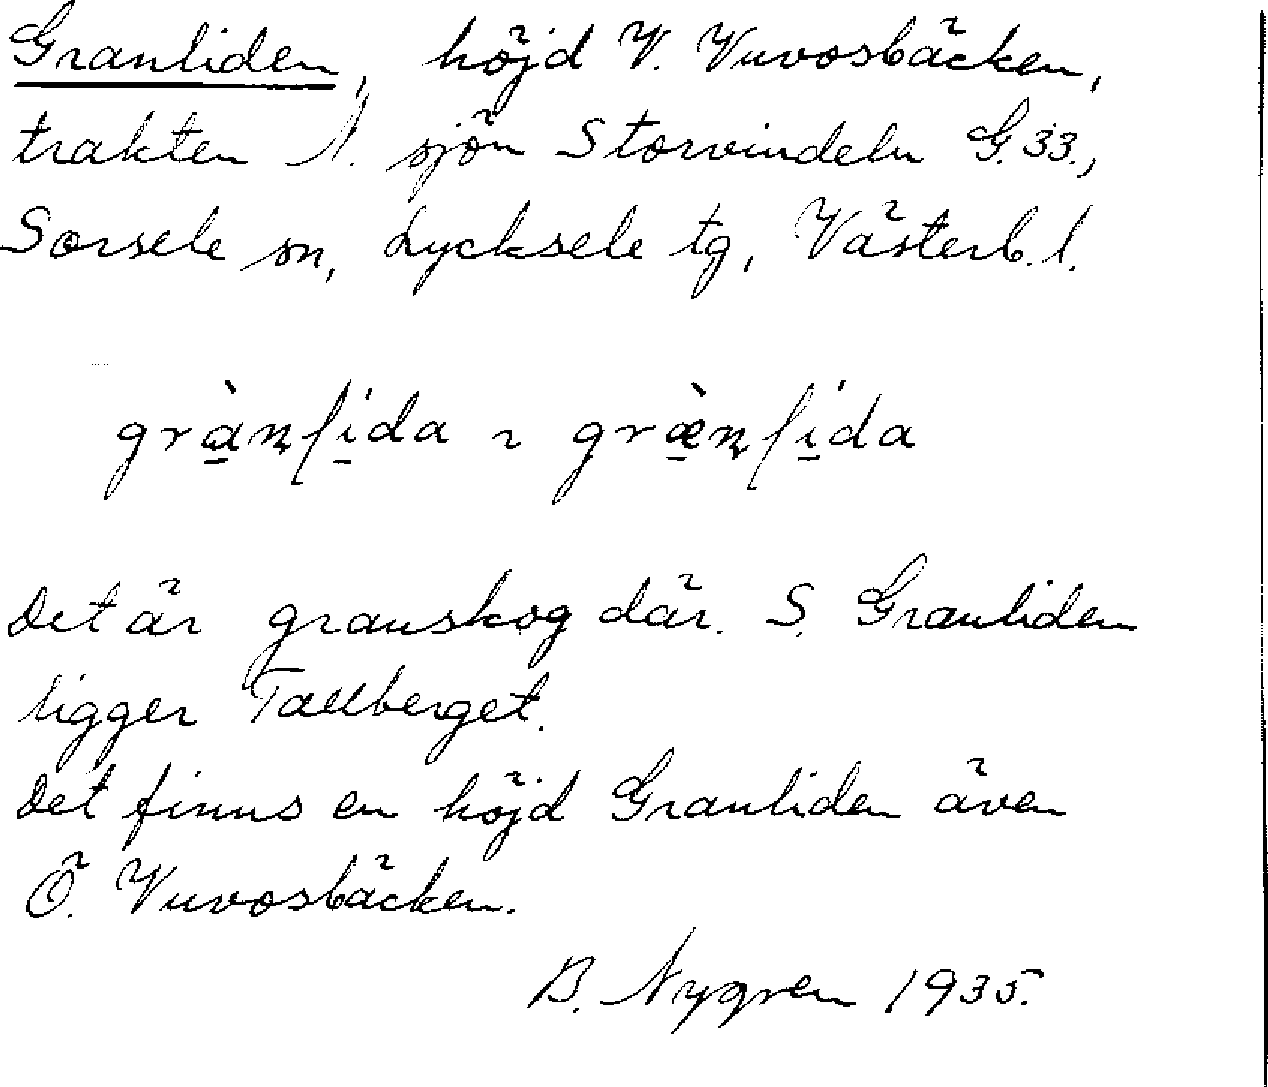 Granliden, höjd V. Vuvosbäcken,
trakten N. sjön Storvindeln G. 33.,
Sorsele sn, Lycksele tg, Västerb. l.
grànlída ~ græ̀nlída
Det är granskog där. S. Granliden
ligger Tallberget.
Det finns en höjd Granliden även
Ö. Vuvosbäcken.
B. Nygren 1935.